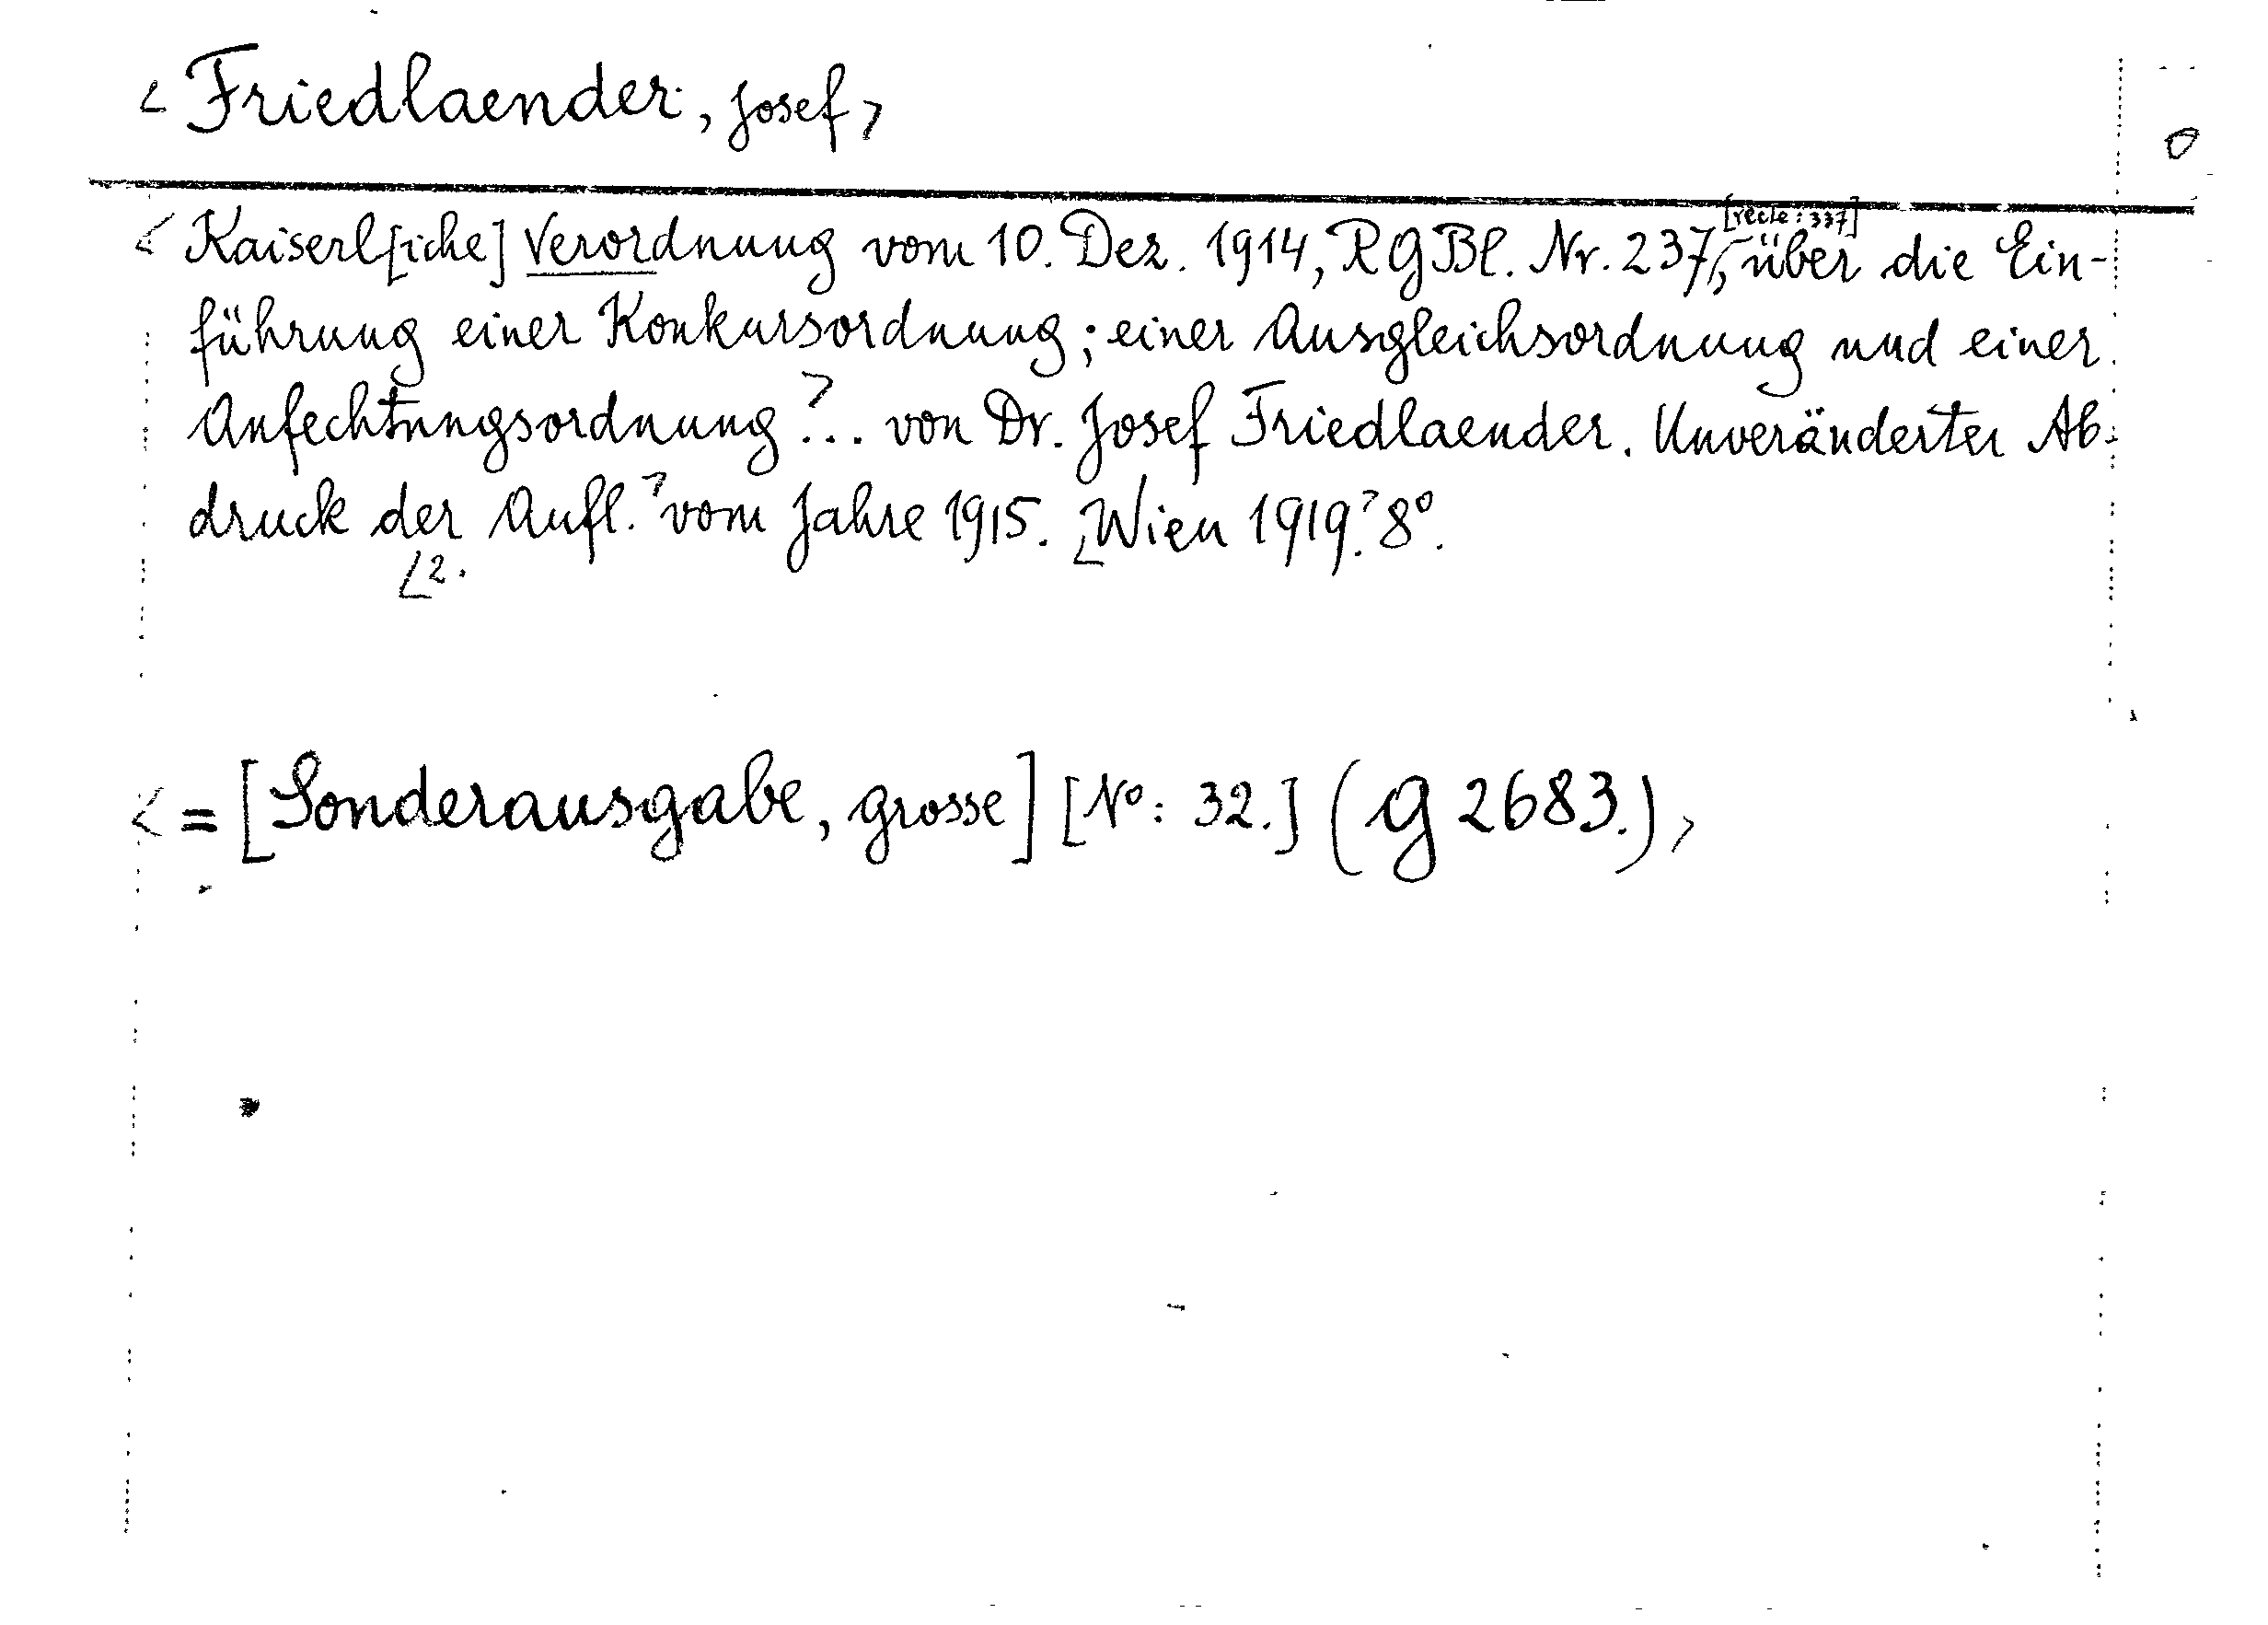 < Friedlaender, Josef >
0
[recte: 337]
< Kaiserl[iche] Verordnung vom 10. Dez. 1914, RGBl. Nr. 237, über die Ein-
führung einer Konkursordnung; einer Ausgleichsordnung und einer
Anfechtungsordnung > ... von Dr. Josef Friedlaender. Unveränderter Ab-
druck der Aufl. > vom Jahre 1915. < Wien 1919. > 8°.
< 2.
< = [Sonderausgabe, grosse] [No: 32.] (G 2683.) >